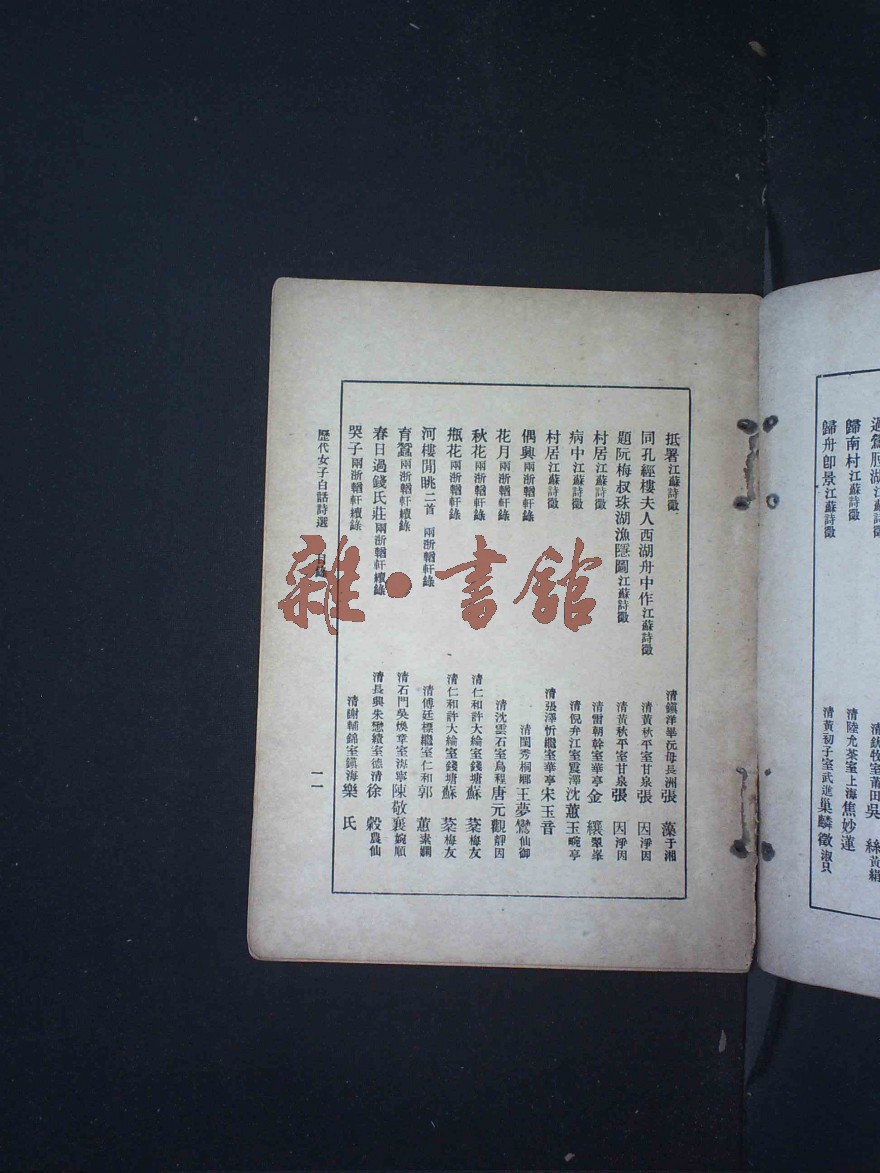 過鶯脰湖江蘇詩徵 清 牧室莆田吳 絲黃絹
歸南村江蘇詩徵 清陸尤茶室上海焦妙蓮
歸舟卽景江蘇詩徵 清黃初子室武進巢麟徵淑只
抵署江蘇詩徵 清鎭洋畢沅母長洲張 藻于湘
同孔經樓夫人西湖舟中作江蘇詩徵 清黃秋平室甘泉張 因淨因
題阮梅叔珠湖漁隱圖江蘇詩徵 清黃秋平室甘泉張 因淨因
村居江蘇詩徵 清雷朝幹室華亭金 纕翠峯
病中江蘇詩徵 清倪弁江室震澤沈蕙玉畹亭
村居江蘇詩徵 清張澤忻繼室華亭宋玉音
偶興兩浙輶軒錄 清閨秀桐鄕王夢鸞仙御
花月兩浙輶軒錄 清沈雲石室烏程唐元觀靜因
秋花兩浙輶軒錄 清仁和許大綸室錢塘蘇 棻梅友
瓶花兩浙輶軒錄 清仁和許大綸室錢塘蘇 棻梅友
河樓閒眺二首 兩浙輶軒錄 清傅廷標繼室仁和郭 蕙素嫻
育蠶兩浙輶軒續錄 清石門吳煥章室海寧陳敬襄婉順
春日過錢氏莊兩浙輶軒續錄 清長興朱懋續室德清徐 縠農仙
哭子兩浙輶軒續錄 清謝輔錦室鎭海樂 氏
歷代女子白話詩選 目錄 一一
雜·書館